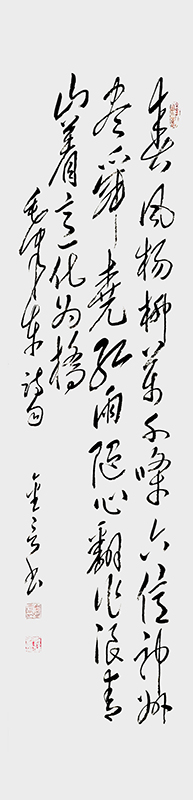 春风杨柳萬千條六億神州
尽舜堯红雨随心翻作浪青
山着意化为橋
毛泽东诗句